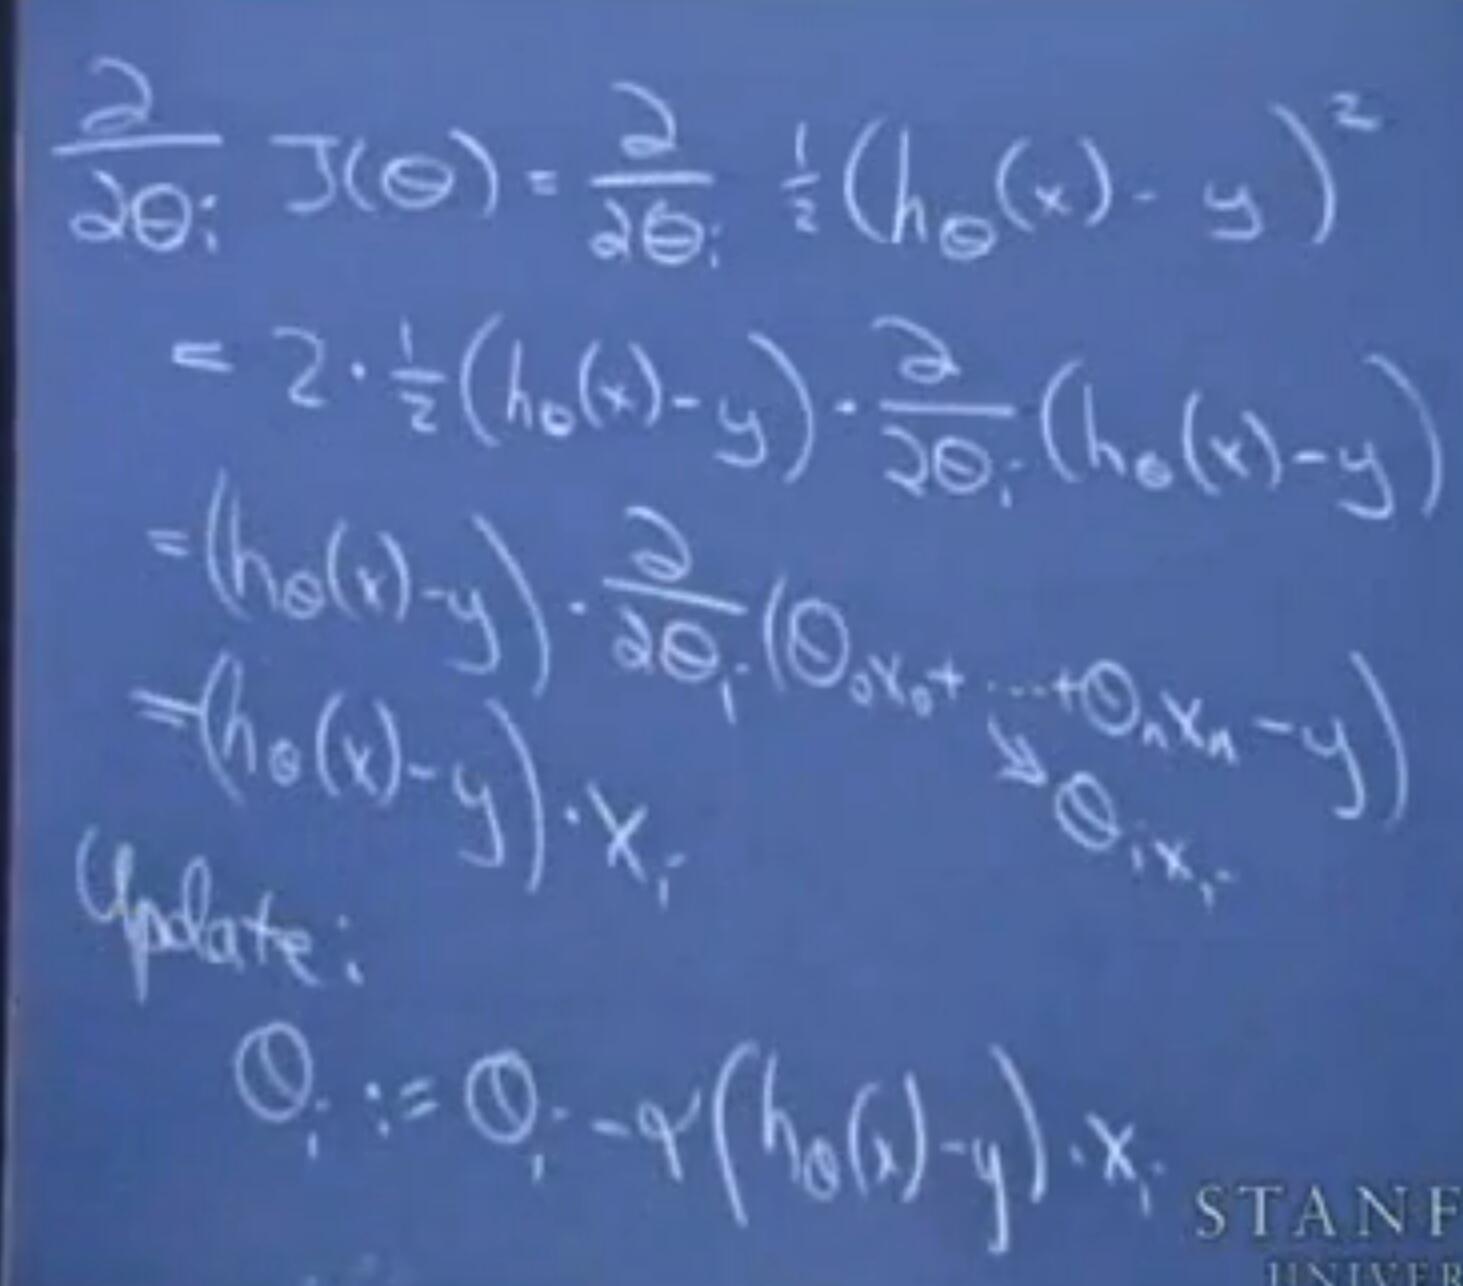 ∂/∂θᵢ J(θ) = ∂/∂θᵢ ½(h_θ(x) - y)²
= 2 · ½(h_θ(x) - y) · ∂/∂θᵢ (h_θ(x) - y)
= (h_θ(x) - y) · ∂/∂θᵢ (θ₀x₀ + ... + θₙxₙ - y)
θᵢxᵢ
= (h_θ(x) - y) · xᵢ
Update:
θᵢ := θᵢ - α(h_θ(x) - y) · xᵢ
STANF
UNIVER